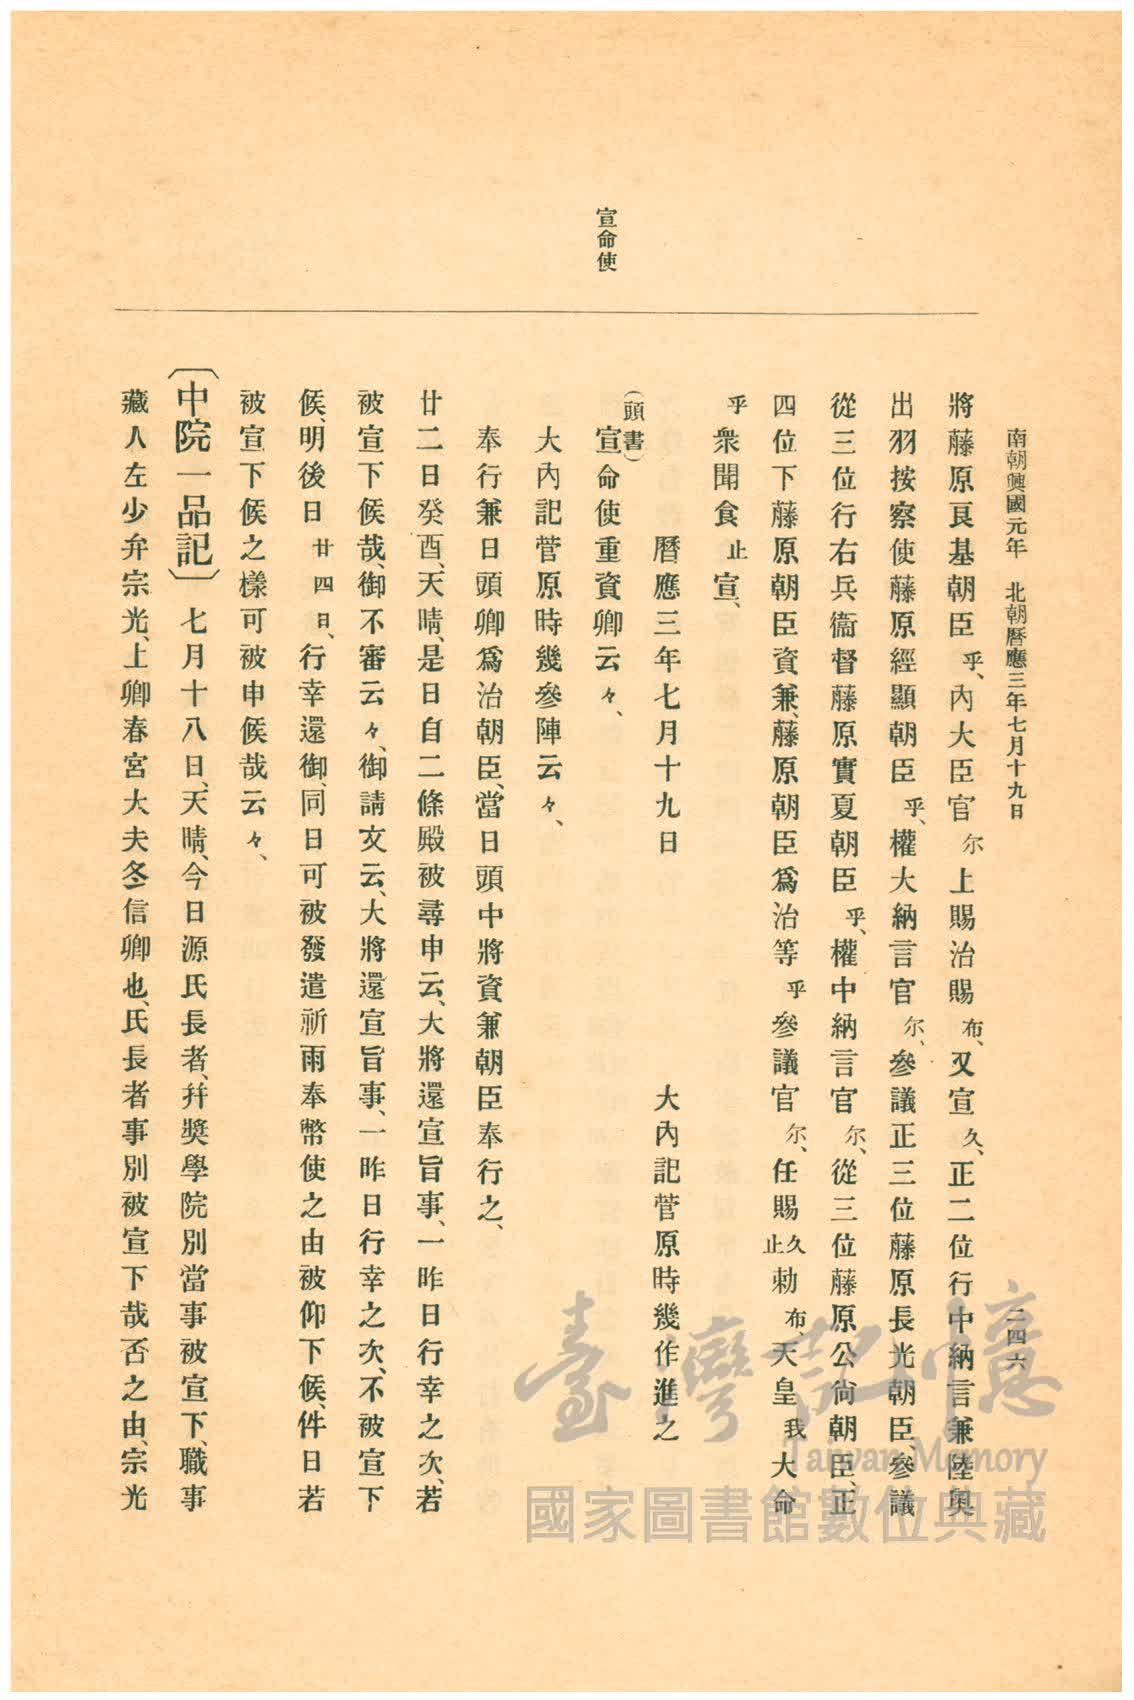 南朝興國元年 北朝曆應三年七月十九日 二四六
宣命使
將藤原良基朝臣乎、內大臣官尓上賜治賜布、又宣久、正二位行中納言兼陸奧
出羽按察使藤原經顯朝臣乎、權大納言官尓、參議正三位藤原長光朝臣、參議
從三位行右兵衞督藤原實夏朝臣乎、權中納言官尓、從三位藤原公尙朝臣、正
四位下藤原朝臣資兼、藤原朝臣爲治等乎參議官尓、任賜久止勅布、天皇我大命
乎衆聞食止宣、
曆應三年七月十九日 大內記菅原時幾作進之
(頭書)
宣命使重資卿云々、
大內記菅原時幾參陣云々、
奉行兼日頭卿爲治朝臣、當日頭中將資兼朝臣奉行之、
廿二日癸酉、天晴、是日自二條殿被尋申云、大將還宣旨事、一昨日行幸之次、若
被宣下候哉、御不審云々、御請文云、大將還宣旨事、一昨日行幸之次、不被宣下
候、明後日廿四日、行幸還御、同日可被發遣祈雨奉幣使之由被仰下候、件日若
被宣下候之樣可被申候哉云々、
〔中院一品記〕七月十八日、天晴、今日源氏長者、幷奬學院別當事被宣下、職事
藏人左少弁宗光、上卿春宮大夫冬信卿也、氏長者事別被宣下哉否之由、宗光
臺灣記憶
Taiwan Memory
國家圖書館數位典藏